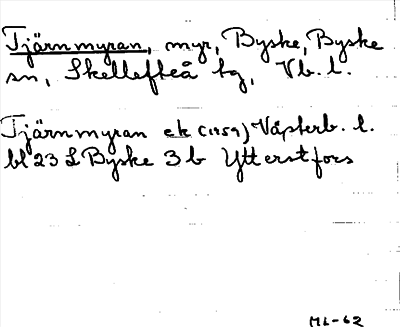 Tjärnmyran, myr, Byske, Byske
sn, Skellefteå tg, Vb. l.
Tjärnmyran ek (1959) Västerb. l.
bl 23 L Byske 3 b Ytterstfors
ML-62